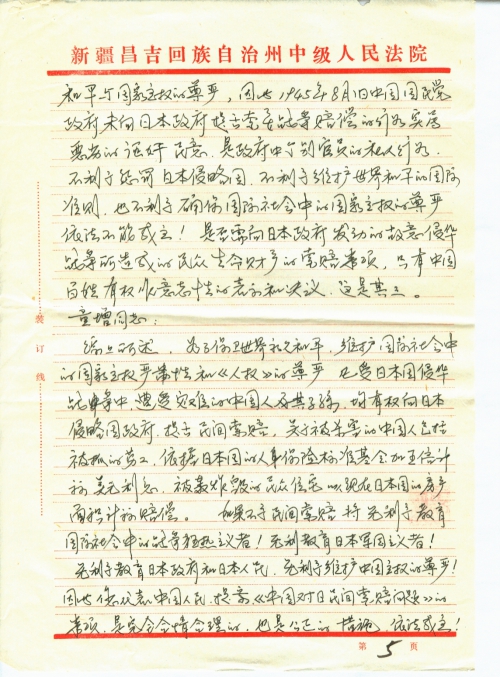 新疆昌吉回族自治州中级人民法院
和平与国家主权的尊严，因此1945年8月旧中国国民党
政府未向日本政府提出索要战争赔偿的行为实属
愚者的 民意，是政府中个别官员的私人行为，
不利于惩罚日本侵略国，不利于维护世界和平的国际
准则，也不利于确保国际社会中的国家主权的尊严
依法不能成立！是否需向日本政府发动的故意侵华
战争所造成的民众生命财产的索赔事项，只有中国
百姓有权 意志性的表示和决议，这是其三。
童增同志：
综上所述，为了保卫世界永久和平，维护国际社会中
的国家主权严肃性和《人权》的尊严 也受日本国侵华
战争中，遭受灾难的中国人及其子孙，均有权向日本
侵略国政府，提出民间索赔，关于被杀害的中国人包括
被抓的劳工，依据日本国的人身保险标准基金加五倍计
称美元利息，被轰炸毁的民众住宅以现在日本国的房产
面积计称赔偿。如果不予民间索赔将无利于教育
国际社会中的战争狂热义者！无利教育日本军国主义者！
无利于教育日本政府和日本人民，无利于维护中国主权的尊严！
因此您代表中国人民，提案《中国对日民间索赔问题》的
事项，是完全合情合理的，也是公正的措施，依法成立！
装订线
第5页